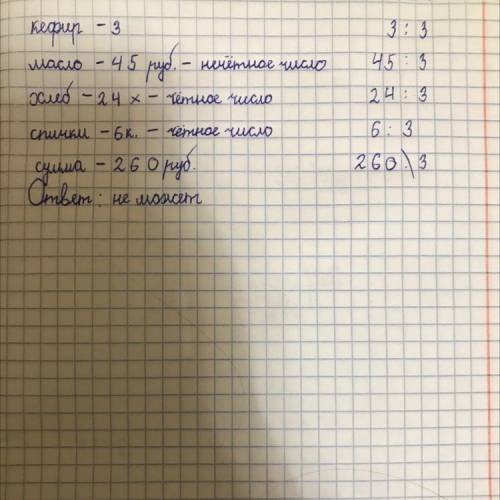 кефир - 3 3 : 3
масло - 45 руб. - нечётное число 45 : 3
хлеб - 24 х - чётное число 24 : 3
спички - 6к. - чётное число 6 : 3
сумма - 260 руб. 260 \ 3
Ответ: не может